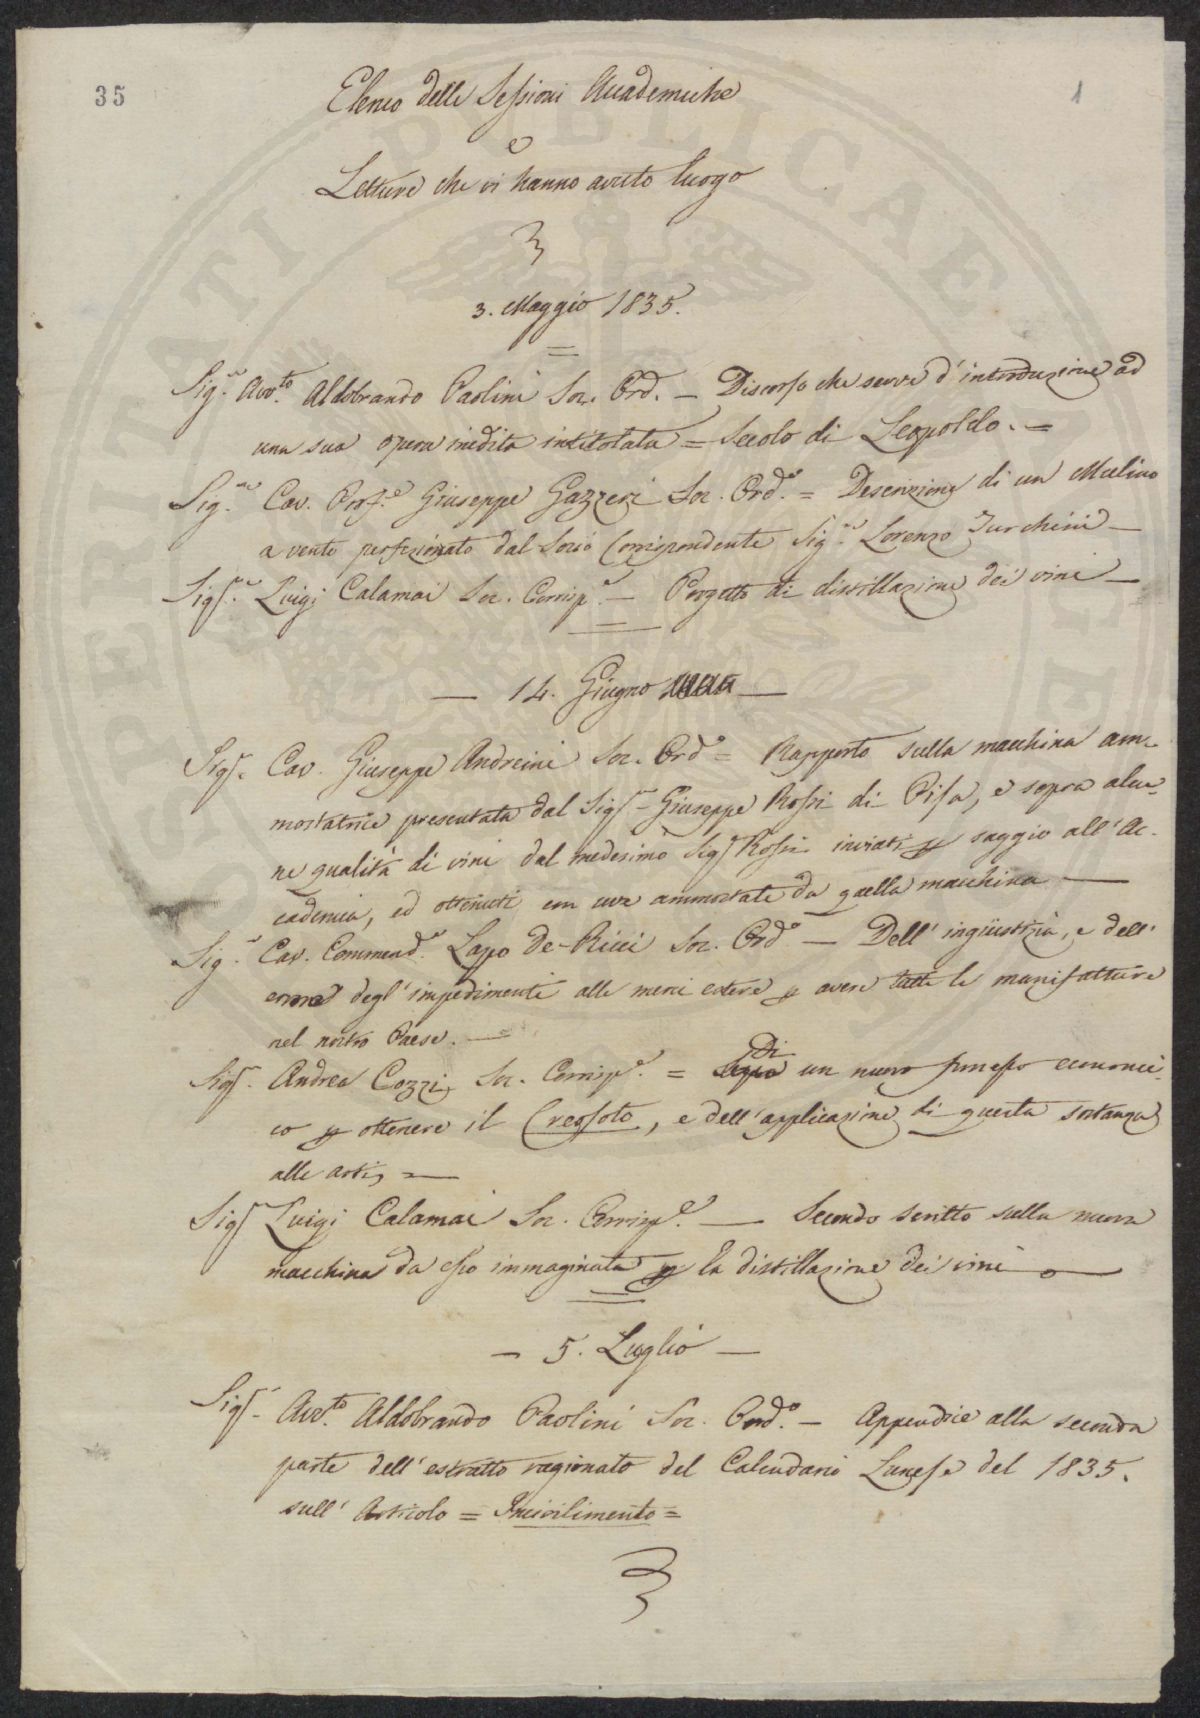 35
1
Elenco delle Sessioni Accademiche
e
Letture che vi hanno avuto luogo
3. Maggio 1835.
Sig.re Avv.to Aldobrando Paolini Soc. Ord. — Discorso che serve d'introduzione ad
una sua opera inedita intitolata = Secolo di Leopoldo. =
Sig.re Cav. Prof.e Giuseppe Gazzeri Soc. Ord.o = Descrizione di un Mulino
a vento perfezionato dal Socio Corrispondente Sig.re Lorenzo Turchini —
Sig.re Luigi Calamai Soc. Corrisp.e — Progetto di distillazione dei vini —
— 14. Giugno —
Sig.r Cav. Giuseppe Andreini Soc. Ord.o = Rapporto sulla macchina am-
mostatrice presentata dal Sig.r Giuseppe Rossi di Pisa, e sopra alcu-
ne qualità di vini dal medesimo Sig.r Rossi inviati p saggio all'Ac-
cademia, ed ottenuti con uve ammostate da quella macchina —
Sig.r Cav. Commend.e Lapo De-Ricci Soc. Ord.o — Dell'ingiustizia, e dell'
errore degl'impedimenti alle merci estere p avere tutte le manifatture
nel nostro Paese. —
Sig.r Andrea Cozzi Soc. Corrisp.e = Di un nuovo processo economi-
co p ottenere il Creosoto, e dell'applicazione di questa sostanza
alle arti, —
Sig.r Luigi Calamai Soc. Corrisp.e — Secondo scritto sulla nuova
macchina da esso immaginata p la distillazione dei vini —
— 5. Luglio —
Sig.r Avv.to Aldobrando Paolini Soc. Ord.o — Appendice alla seconda
parte dell'estratto ragionato del Calendario Lunese del 1835.
sull'Articolo = Incivilimento =